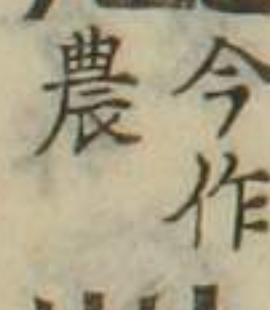 今作
農